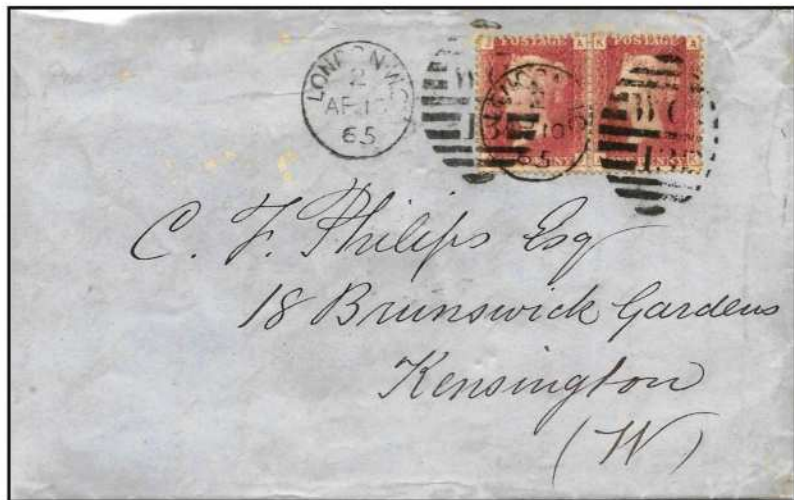 LONDON·W.C
2
AP 10
65
J POSTAGE A K POSTAGE A
WC
C. F. Philips Esq
18 Brunswick Gardens
Kensington
(W)